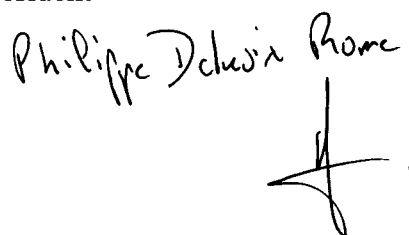 Philippe Delacroix Rome